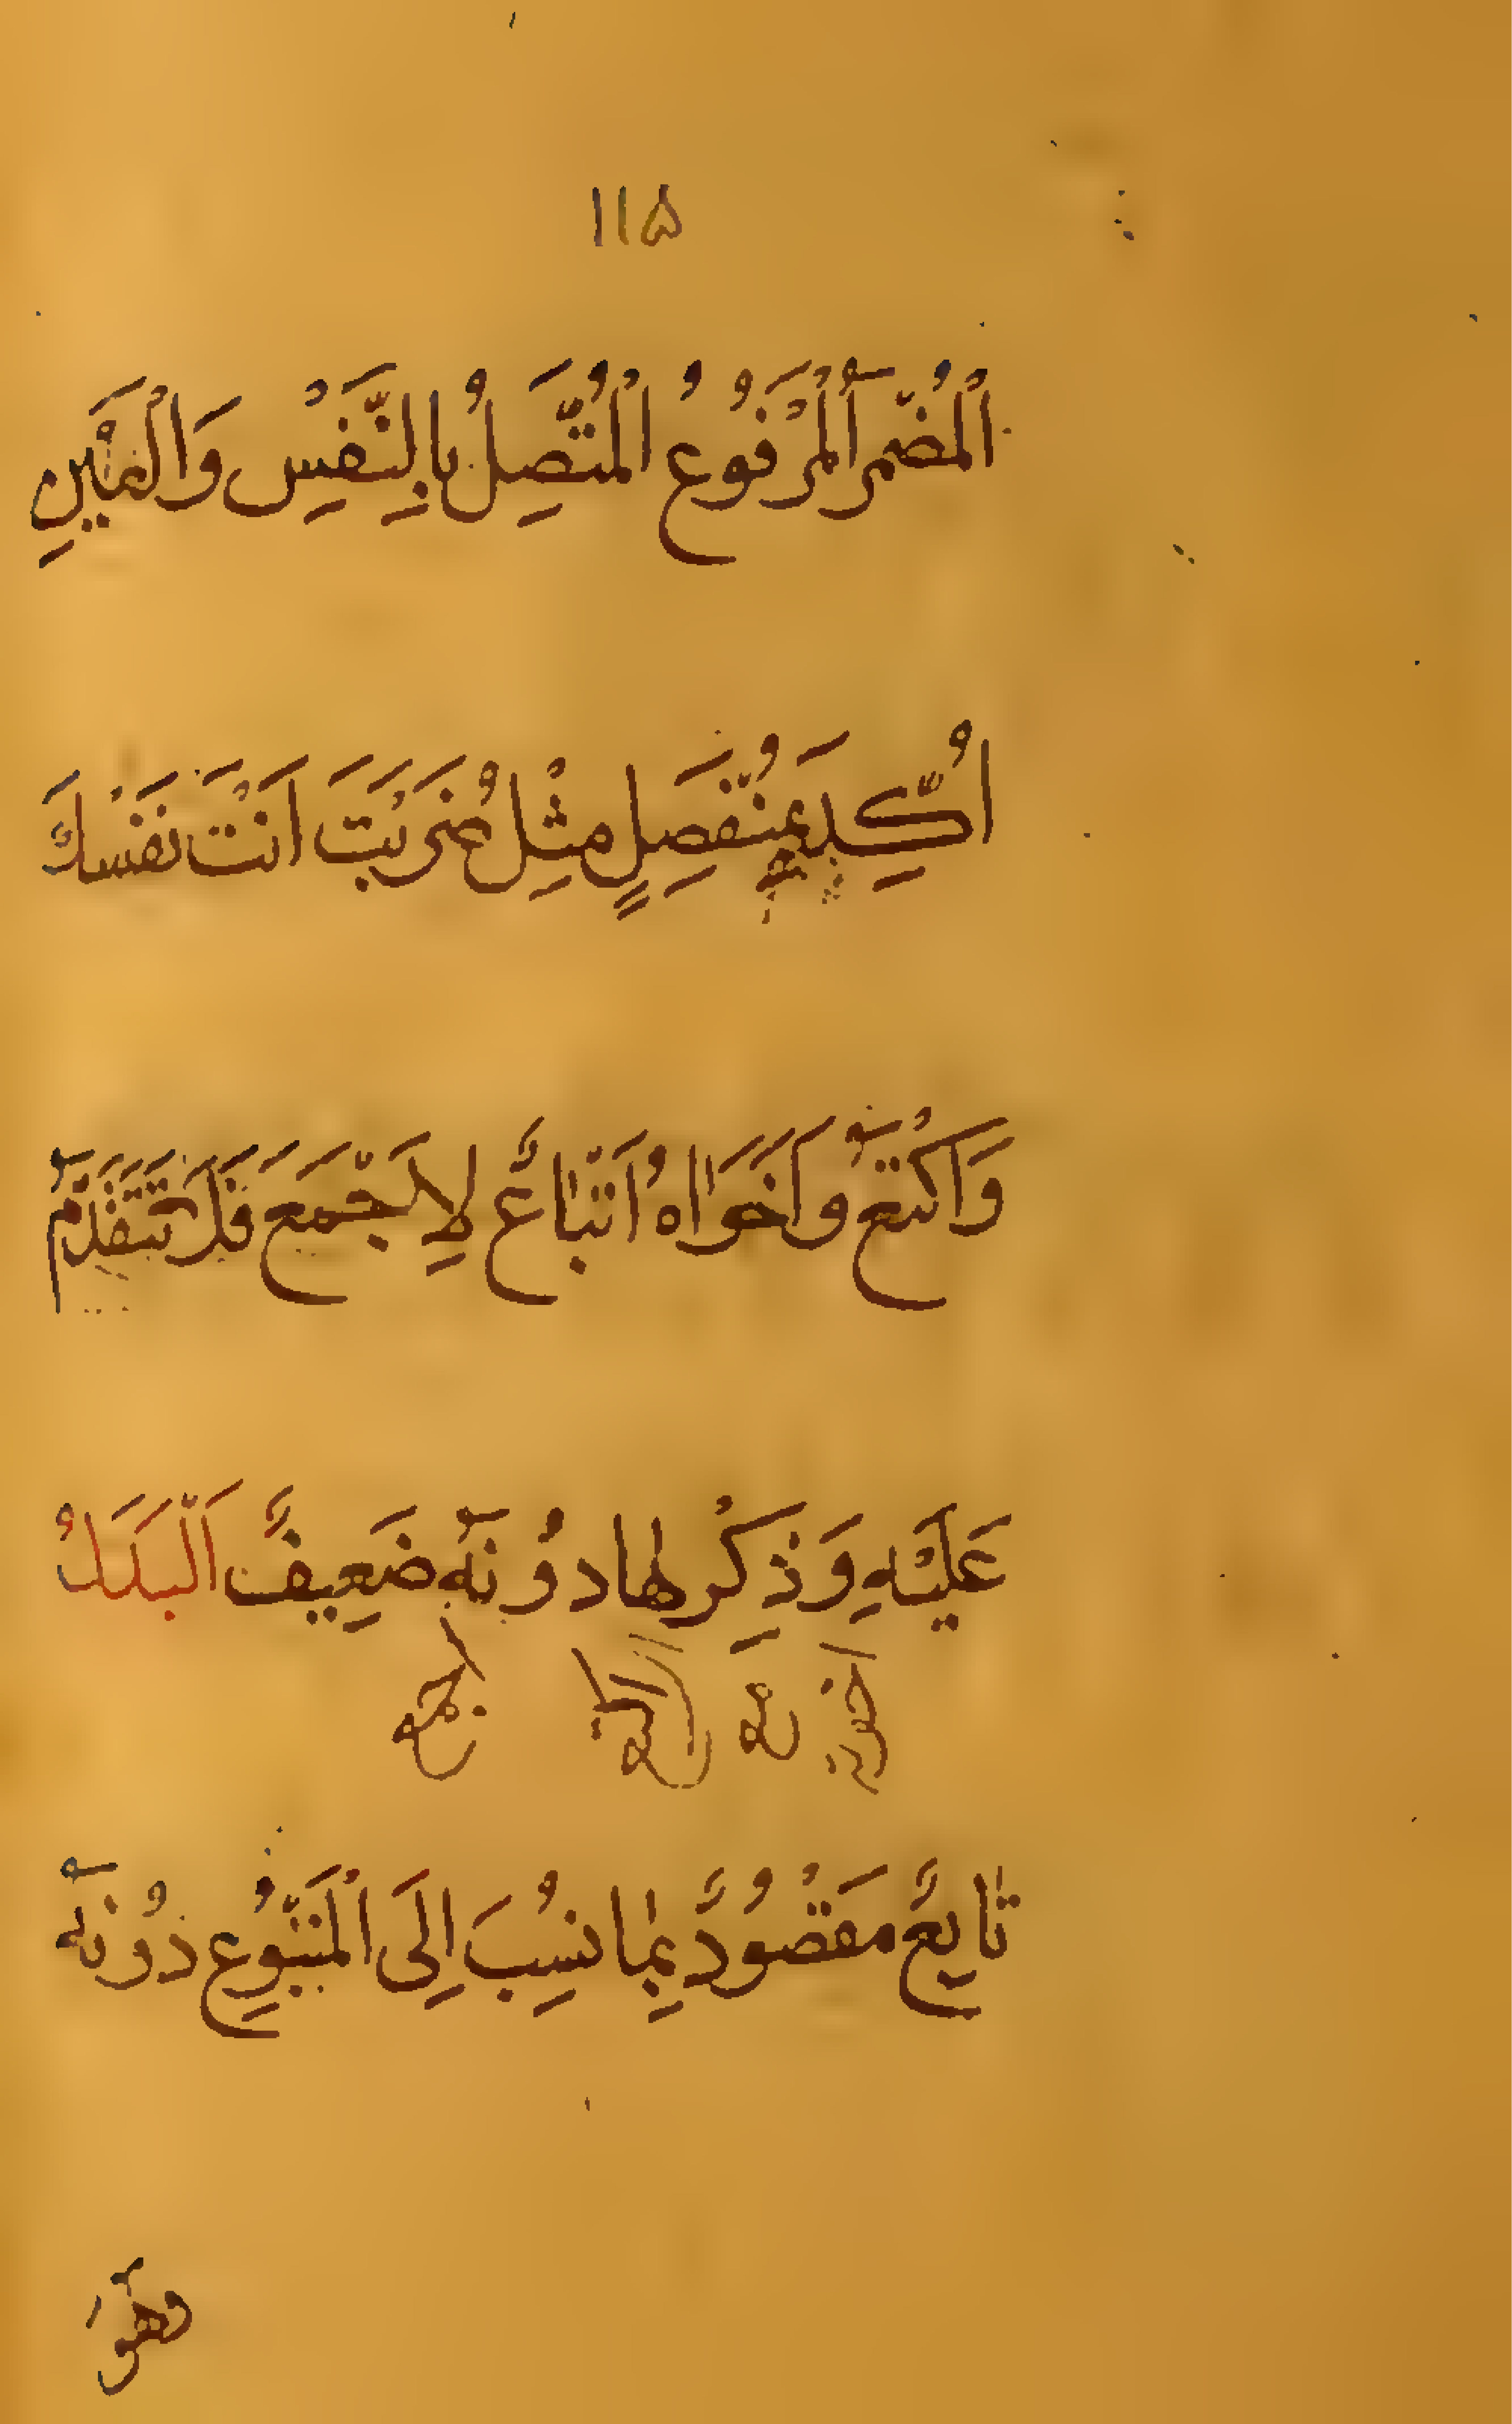 ۱۱۵
اَلْمُضْمَرُ الْمَرْفُوعُ الْمُتَّصِلُ بِالنَّفْسِ وَالْعَيْنِ
اُكِّدَ بِمُنْفَصِلٍ مِثْلُ ضَرَبْتَ اَنْتَ نَفْسَكَ
وَاَكْتَعُ وَاَخَوَاهُ اَتْبَاعٌ لِاَجْمَعَ فَلَا تَتَقَدَّمُ
عَلَيْهِ وَذِكْرُهَا دُونَهُ ضَعِيفٌ اَلْبَدَلُ
تَابِعٌ مَقْصُودٌ بِمَا نُسِبَ اِلَى الْمَتْبُوعِ دُونَهُ
وهو